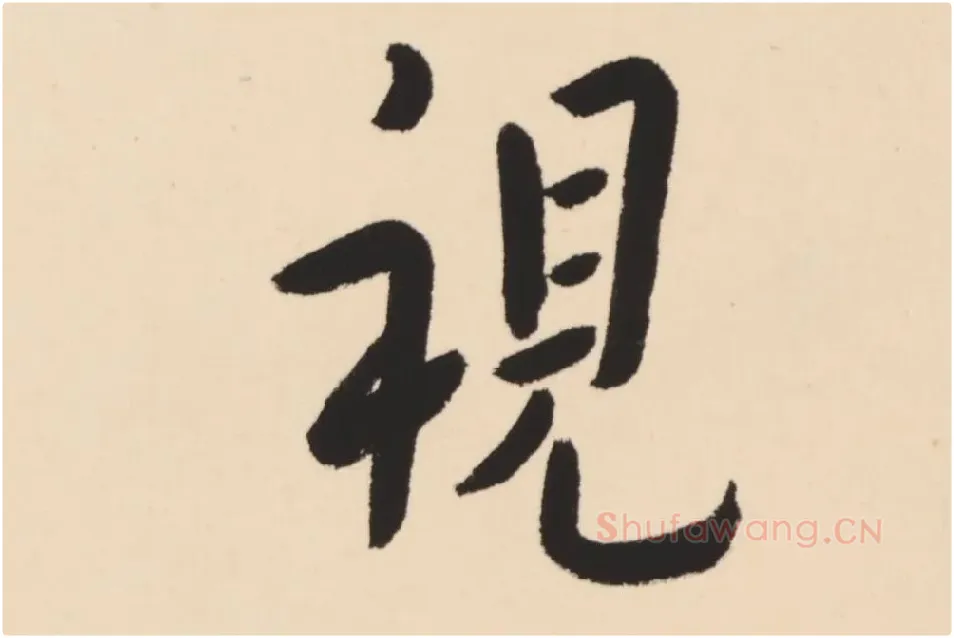 視
Shufawang.CN